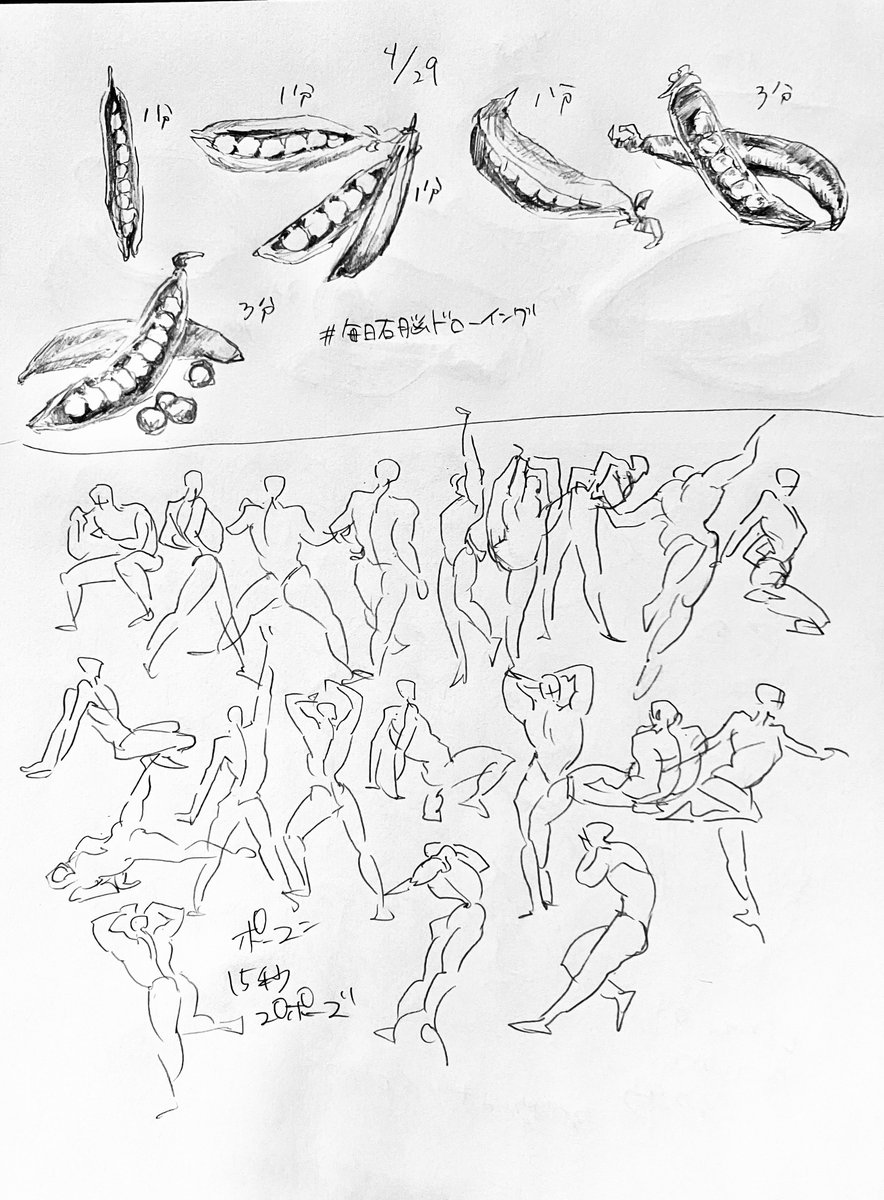 4/29
1分
1分
1分
1分
3分
3分
#毎日右脳ドローイング
ポーズ
15秒
20ポーズ